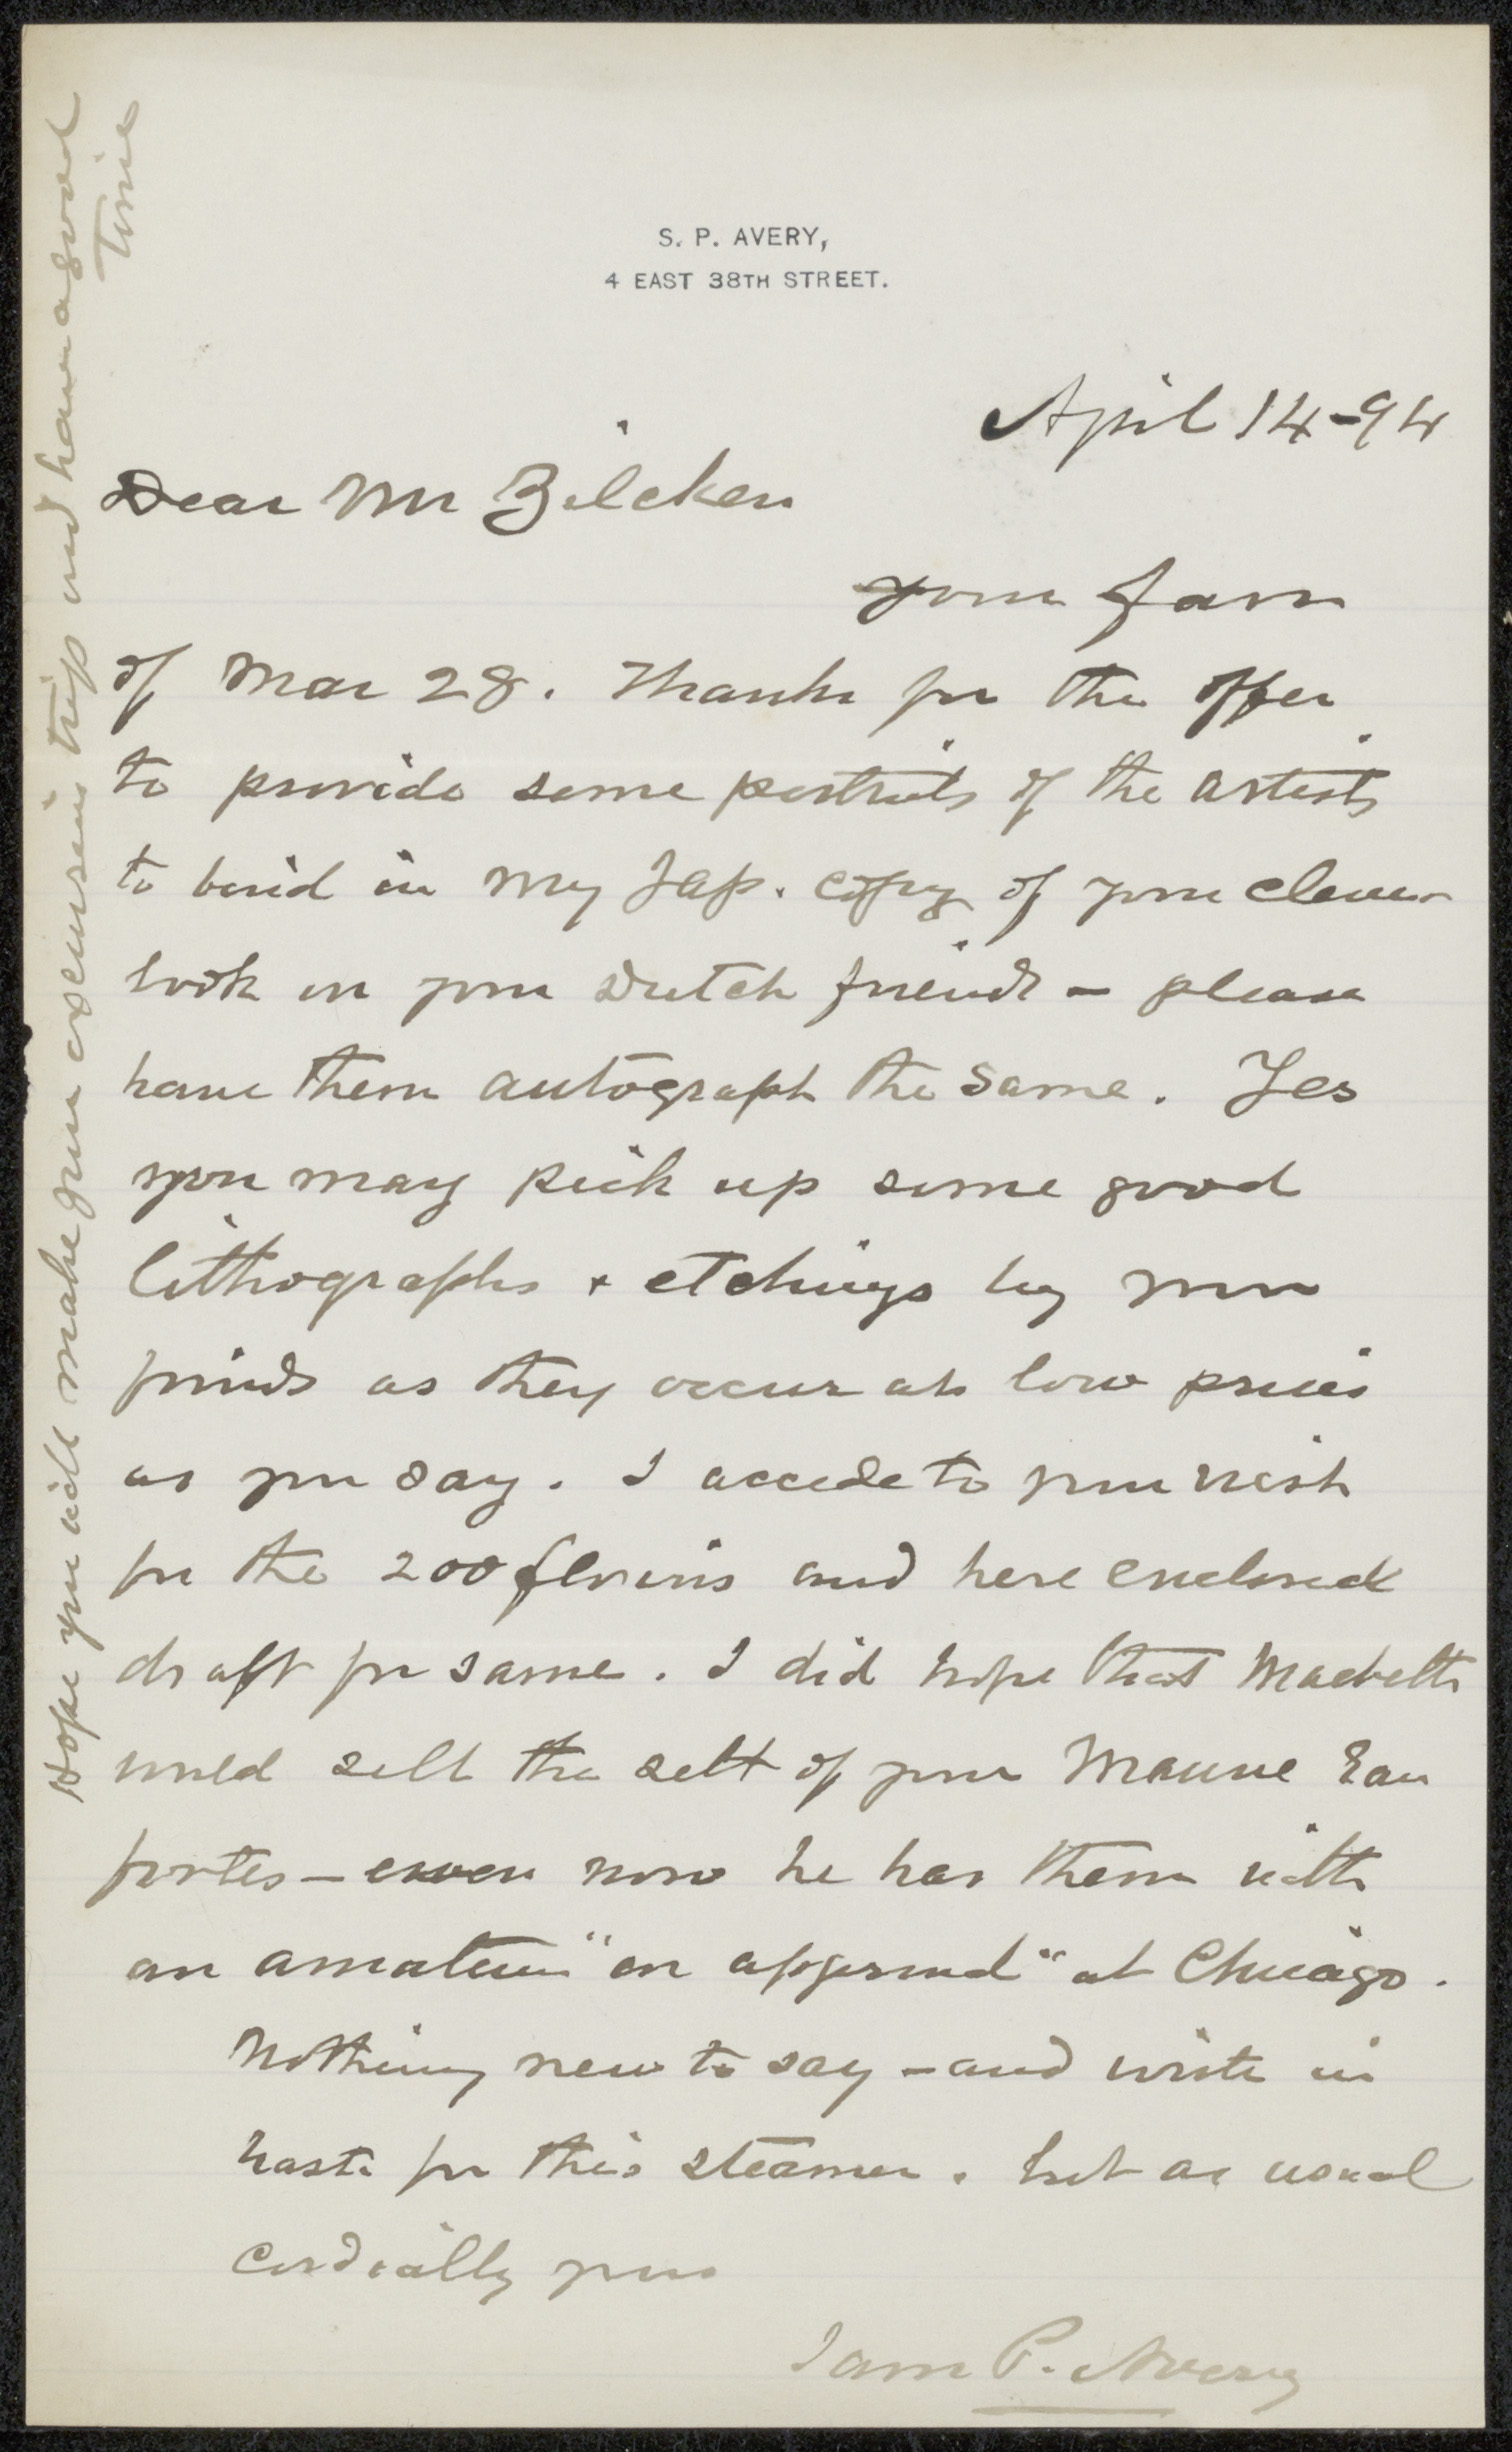 S. P. AVERY,
4 EAST 38TH STREET.
April 14-94
Dear Mr Zilcken
your favr
of Mar 28. Thanks for the offer
to provide some portraits of the artists
to bind in my Jap. copy of your clever
book on your Dutch friends - please
have them autograph the same. Yes
you may pick up some good
lithographs + etchings by your
friends as they occur at low prices
as you say. I accede to your wish
for the 200 florins and here enclosed
draft for same. I did hope that Macbeth
would sell the sett of your Mauve Eau
fortes - even now he has them with
an amateur "on approval" at Chicago.
Nothing new to say - and write in
haste for this steamer. but as usual
cordially yours
Sam P. Avery
Hope you will make your excursion trip and have a good
time